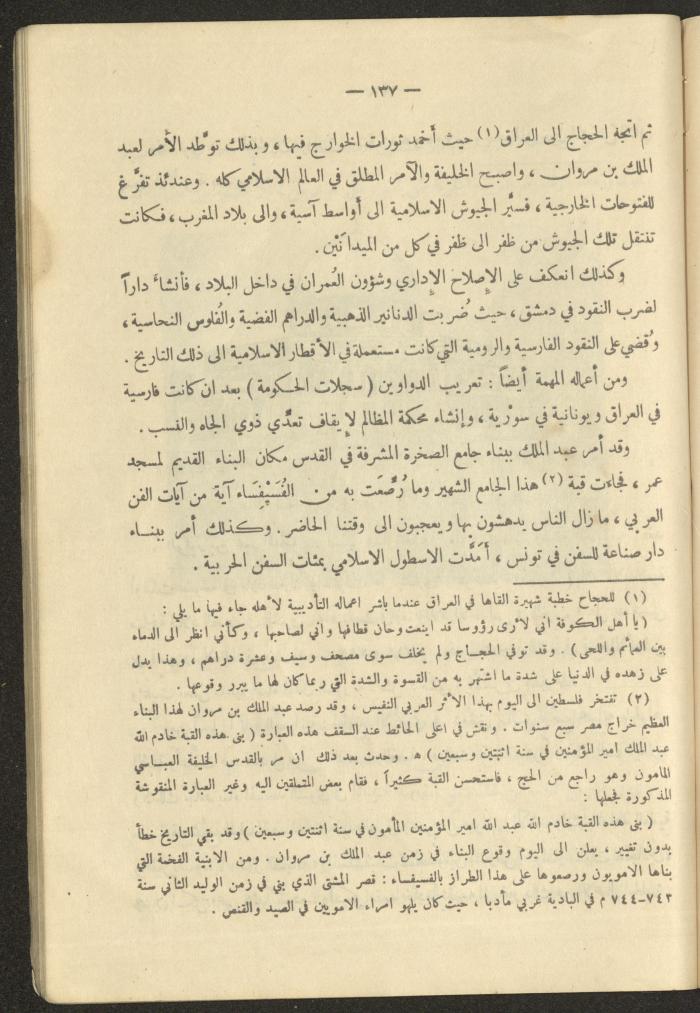 — ١٣٧ —
ثم اتجه الحجاج الى العراق(١) حيث أخمد ثورات الخوارج فيها ، وبذلك توطَّد الأمر لعبد
الملك بن مروان ، واصبح الخليفة والآمر المطلق في العالم الاسلامي كله . وعندئذ تفرَّغ
للفتوحات الخارجية ، فسيَّر الجيوش الاسلامية الى أواسط آسية ، والى بلاد المغرب ، فكانت
تنتقل تلك الجيوش من ظفر الى ظفر في كل من الميدانَيْن .
وكذلك انعكف على الإصلاح الإداري وشؤون العُمران في داخل البلاد ، فأنشاء داراً
لضرب النقود في دمشق ، حيث ضُربت الدنانير الذهبية والدراهم الفضية والفُلوس النحاسية ،
وقُضي على النقود الفارسية والرومية التي كانت مستعملة في الأقطار الاسلامية الى ذلك التاريخ .
ومن أعماله المهمة أيضاً : تعريب الدواوين ( سجلات الحكومة ) بعد ان كانت فارسية
في العراق ويونانية في سورية ، وإنشاء محكمة المظالم لإيقاف تعدّي ذوي الجاه والنسب .
وقد أمر عبد الملك ببناء جامع الصخرة المشرفة في القدس مكان البناء القديم لمسجد
عمر ، فجاءت قبة (٢) هذا الجامع الشهير وما رُصّعت به من الفُسَيْفِسَاء آية من آيات الفن
العربي ، ما زال الناس يدهشون بها ويعجبون الى وقتنا الحاضر . وكذلك أمر ببناء
دار صناعة للسفن في تونس ، أمَدَّت الاسطول الاسلامي بمئات السفن الحربية .
(١) للحجاج خطبة شهيرة القاها في العراق عندما باشر اعماله التأديبية لأهله جاء فيها ما يلي :
( يا أهل الكوفة اني لأرى رؤوسا قد اينعت وحان قطافها واني لصاحبها ، وكأني انظر الى الدماء
بين العمائم واللحى ) . وقد توفي الحجاج ولم يخلف سوى مصحف وسيف وعشرة دراهم ، وهذا يدل
على زهده في الدنيا على شدة ما اشتهر به من القسوة والشدة التي ربما كان لها ما يبرر وقوعها .
(٢) تفتخر فلسطين الى اليوم بهذا الأثر العربي النفيس ، وقد رصد عبد الملك بن مروان لهذا البناء
العظيم خراج مصر سبع سنوات . ونقش في اعلى الحائط عند السقف هذه العبارة ( بنى هذه القبة خادم الله
عبد الملك امير المؤمنين في سنة اثنتين وسبعين ) ه . وحدث بعد ذلك ان مر بالقدس الخليفة العباسي
المأمون وهو راجع من الحج ، فاستحسن القبة كثيراً ، فقام بعض المتملقين اليه وغير العبارة المنقوشة
المذكورة فجعلها :
( بنى هذه القبة خادم الله عبد الله امير المؤمنين المأمون في سنة اثنتين وسبعين ) وقد بقي التاريخ خطأ
بدون تغيير ، يعلن الى اليوم وقوع البناء في زمن عبد الملك بن مروان . ومن الابنية الفخمة التي
بناها الامويون ورصعوها على هذا الطراز بالفسيفساء : قصر المشتى الذي بني في زمن الوليد الثاني سنة
٧٤٣-٧٤٤ م في البادية غربي مأدبا ، حيث كان يلهو امراء الامويين في الصيد والقنص .